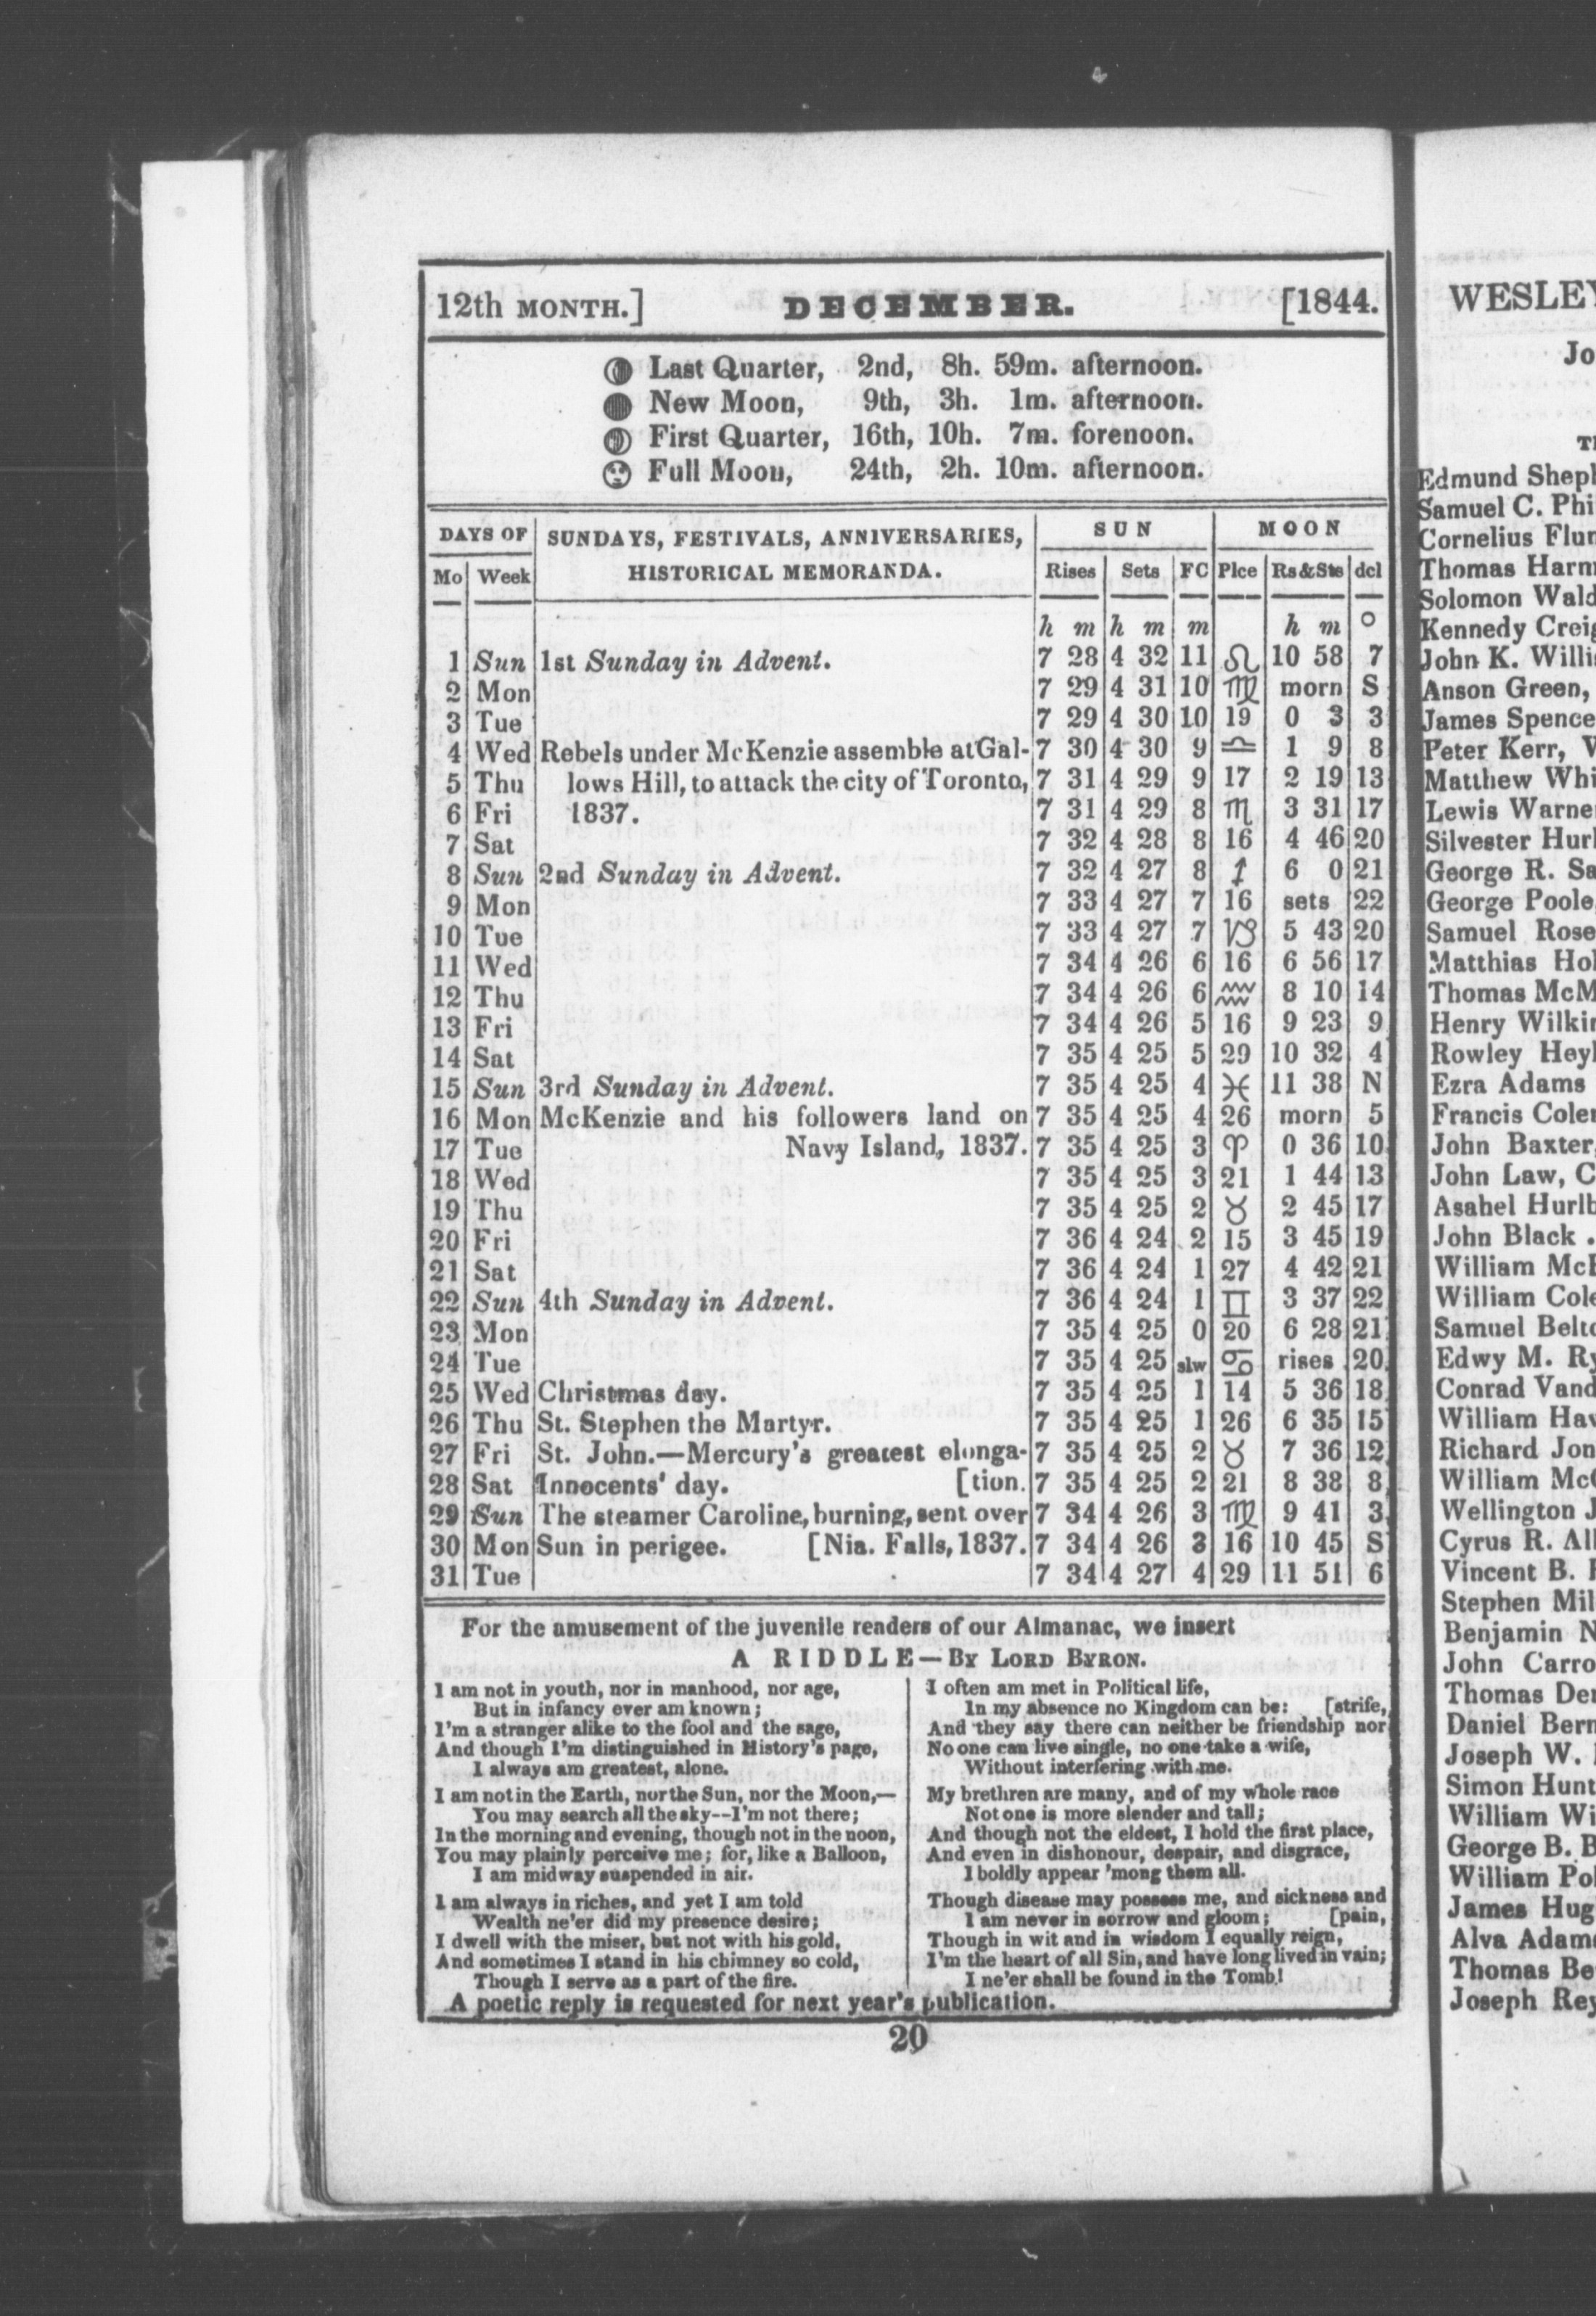 12th MONTH.] DECEMBER. [1844.
Last Quarter, 2nd, 8h. 59m. afternoon.
New Moon, 9th, 3h. 1m. afternoon.
First Quarter, 16th, 10h. 7m. forenoon.
Full Moon, 24th, 2h. 10m. afternoon.
DAYS OF SUNDAYS, FESTIVALS, ANNIVERSARIES, SUN MOON
Mo Week HISTORICAL MEMORANDA. Rises Sets FC Plce Rs&Sts dcl
h m h m m h m °
1 Sun 1st Sunday in Advent. 7 28 4 32 11 ♌ 10 58 7
2 Mon 7 29 4 31 10 ♍ morn S
3 Tue 7 29 4 30 10 19 0 3 3
4 Wed Rebels under McKenzie assemble at Gal- 7 30 4 30 9 ♎ 1 9 8
5 Thu lows Hill, to attack the city of Toronto, 7 31 4 29 9 17 2 19 13
6 Fri 1837. 7 31 4 29 8 ♏ 3 31 17
7 Sat 7 32 4 28 8 16 4 46 20
8 Sun 2nd Sunday in Advent. 7 32 4 27 8 ♐ 6 0 21
9 Mon 7 33 4 27 7 16 sets 22
10 Tue 7 33 4 27 7 ♑ 5 43 20
11 Wed 7 34 4 26 6 16 6 56 17
12 Thu 7 34 4 26 6 ♒ 8 10 14
13 Fri 7 34 4 26 5 16 9 23 9
14 Sat 7 35 4 25 5 29 10 32 4
15 Sun 3rd Sunday in Advent. 7 35 4 25 4 ♓ 11 38 N
16 Mon McKenzie and his followers land on 7 35 4 25 4 26 morn 5
17 Tue Navy Island, 1837. 7 35 4 25 3 ♈ 0 36 10
18 Wed 7 35 4 25 3 21 1 44 13
19 Thu 7 35 4 25 2 ♉ 2 45 17
20 Fri 7 36 4 24 2 15 3 45 19
21 Sat 7 36 4 24 1 27 4 42 21
22 Sun 4th Sunday in Advent. 7 36 4 24 1 ♊ 3 37 22
23 Mon 7 35 4 25 0 20 6 28 21
24 Tue 7 35 4 25 slw ♋ rises 20
25 Wed Christmas day. 7 35 4 25 1 14 5 36 18
26 Thu St. Stephen the Martyr. 7 35 4 25 1 26 6 35 15
27 Fri St. John.—Mercury's greatest elonga- 7 35 4 25 2 ♉ 7 36 12
28 Sat Innocents' day. [tion. 7 35 4 25 2 21 8 38 8
29 Sun The steamer Caroline, burning, sent over 7 34 4 26 3 ♍ 9 41 3
30 Mon Sun in perigee. [Nia. Falls, 1837. 7 34 4 26 3 16 10 45 S
31 Tue 7 34 4 27 4 29 11 51 6
For the amusement of the juvenile renders of our Almanac, we insert
A RIDDLE—BY LORD BYRON.
I am not in youth, nor in manhood, nor age,
But in infancy ever am known;
I'm a stranger alike to the fool and the sage,
And though I'm distinguished in History's page,
I always am greatest, alone.
I am not in the Earth, nor the Sun, nor the Moon,—
You may search all the sky--I'm not there;
In the morning and evening, though not in the noon,
You may plainly perceive me; for, like a Balloon,
I am midway suspended in air.
I am always in riches, and yet I am told
Wealth ne'er did my presence desire;
I dwell with the miser, but not with his gold,
And sometimes I stand in his chimney so cold,
Though I serve as a part of the fire.
I often am met in Political life,
In my absence no Kingdom can be: [strife,
And they say there can neither be friendship nor
No one can live single, no one take a wife,
Without interfering with me.
My brethren are many, and of my whole race
Not one is more slender and tall;
And though not the eldest, I hold the first place,
And even in dishonour, despair, and disgrace,
I boldly appear 'mong them all.
Though disease may possess me, and sickness and
I am never in sorrow and gloom; [pain,
Though in wit and in wisdom I equally reign,
I'm the heart of all Sin, and have long lived in vain;
I ne'er shall be found in the Tomb!
A poetic reply is requested for next year's publication.
20
WESLEY
Jo
Edmund Shep
Samuel C. Phi
Cornelius Flu
Thomas Harm
Solomon Wald
Kennedy Creig
John K. Willi
Anson Green,
James Spence
Peter Kerr, V
Matthew Whi
Lewis Warne
Silvester Hurl
George R. Sa
George Poole
Samuel Rose
Matthias Hol
Thomas McM
Henry Wilkin
Rowley Heyl
Ezra Adams
Francis Cole
John Baxter,
John Law, C
Asahel Hurlb
John Black .
William McF
William Cole
Samuel Belto
Edwy M. Ry
Conrad Vand
William Hav
Richard Jon
William McC
Wellington J
Cyrus R. All
Vincent B. H
Stephen Mil
Benjamin N
John Carro
Thomas De
Daniel Bern
Joseph W.
Simon Hunt
William Wi
George B. B
William Pol
James Hug
Alva Adam
Thomas Be
Joseph Rey